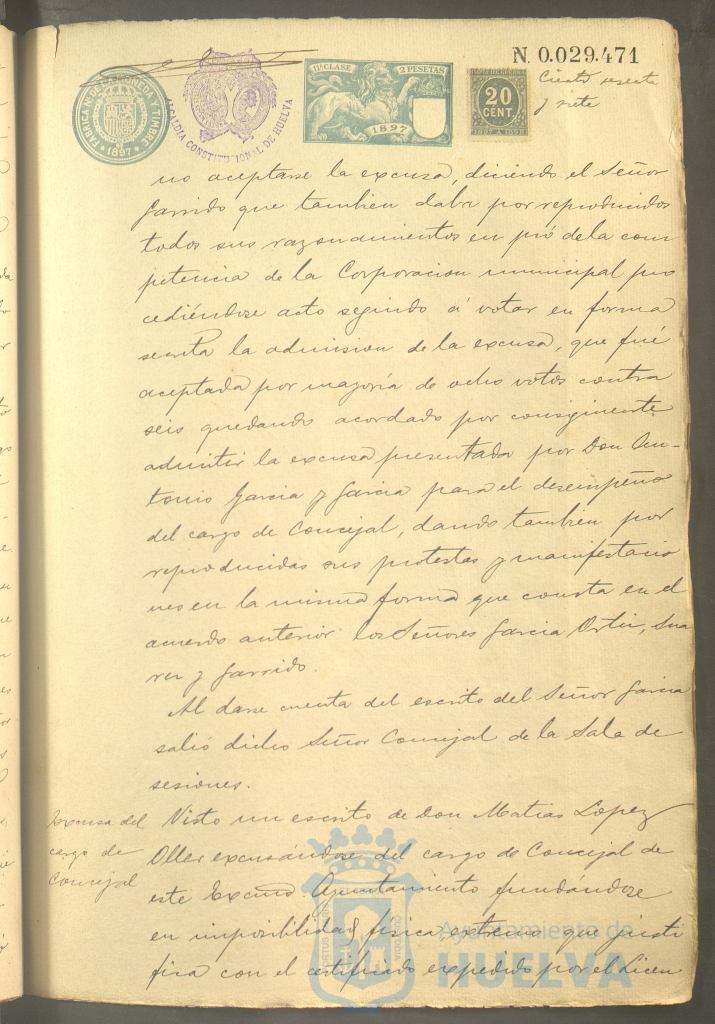 N. 0.029.471
Ciento sesenta
y siete
11ª CLASE 2 PESETAS
1897
20
CENT.
1897 A 1898
FÁBRICA NAL DE MONEDA Y TIMBRE
1897
ALCALDIA CONSTITUCIONAL DE HUELVA
no aceptarse la excusa, diciendo el Señor
Garrido que tambien daba por reproducidos
todos sus razonamientos en pró dela com
petencia de la Corporacion municipal pro
cediéndose acto seguido á votar en forma
secreta la admision de la excusa, que fué
aceptada por mayoría de ocho votos contra
seis quedando acordado por consiguiente
admitir la excusa presentada por Don An-
tonio Garcia y Garcia para el desempeño
del cargo de Concejal, dando tambien por
reproducidas sus protestas y manifestacio
nes en la misma forma que consta en el
acuerdo anterior los Señores Garcia Ortiz, Sua
rez y Garrido.
Al darse cuenta del escrito del Señor Garcia
salió dicho Señor Concejal de la Sala de
sesiones.
Excusa del
cargo de
Concejal
Visto un escrito de Don Matias Lopez
Oller excusándose del cargo de Concejal de
este Excmo. Ayuntamiento fundándose
en imposibilidad fisica, extremo que justi
fica con el certificado expedido por el Licen
Ayuntamiento de
HUELVA